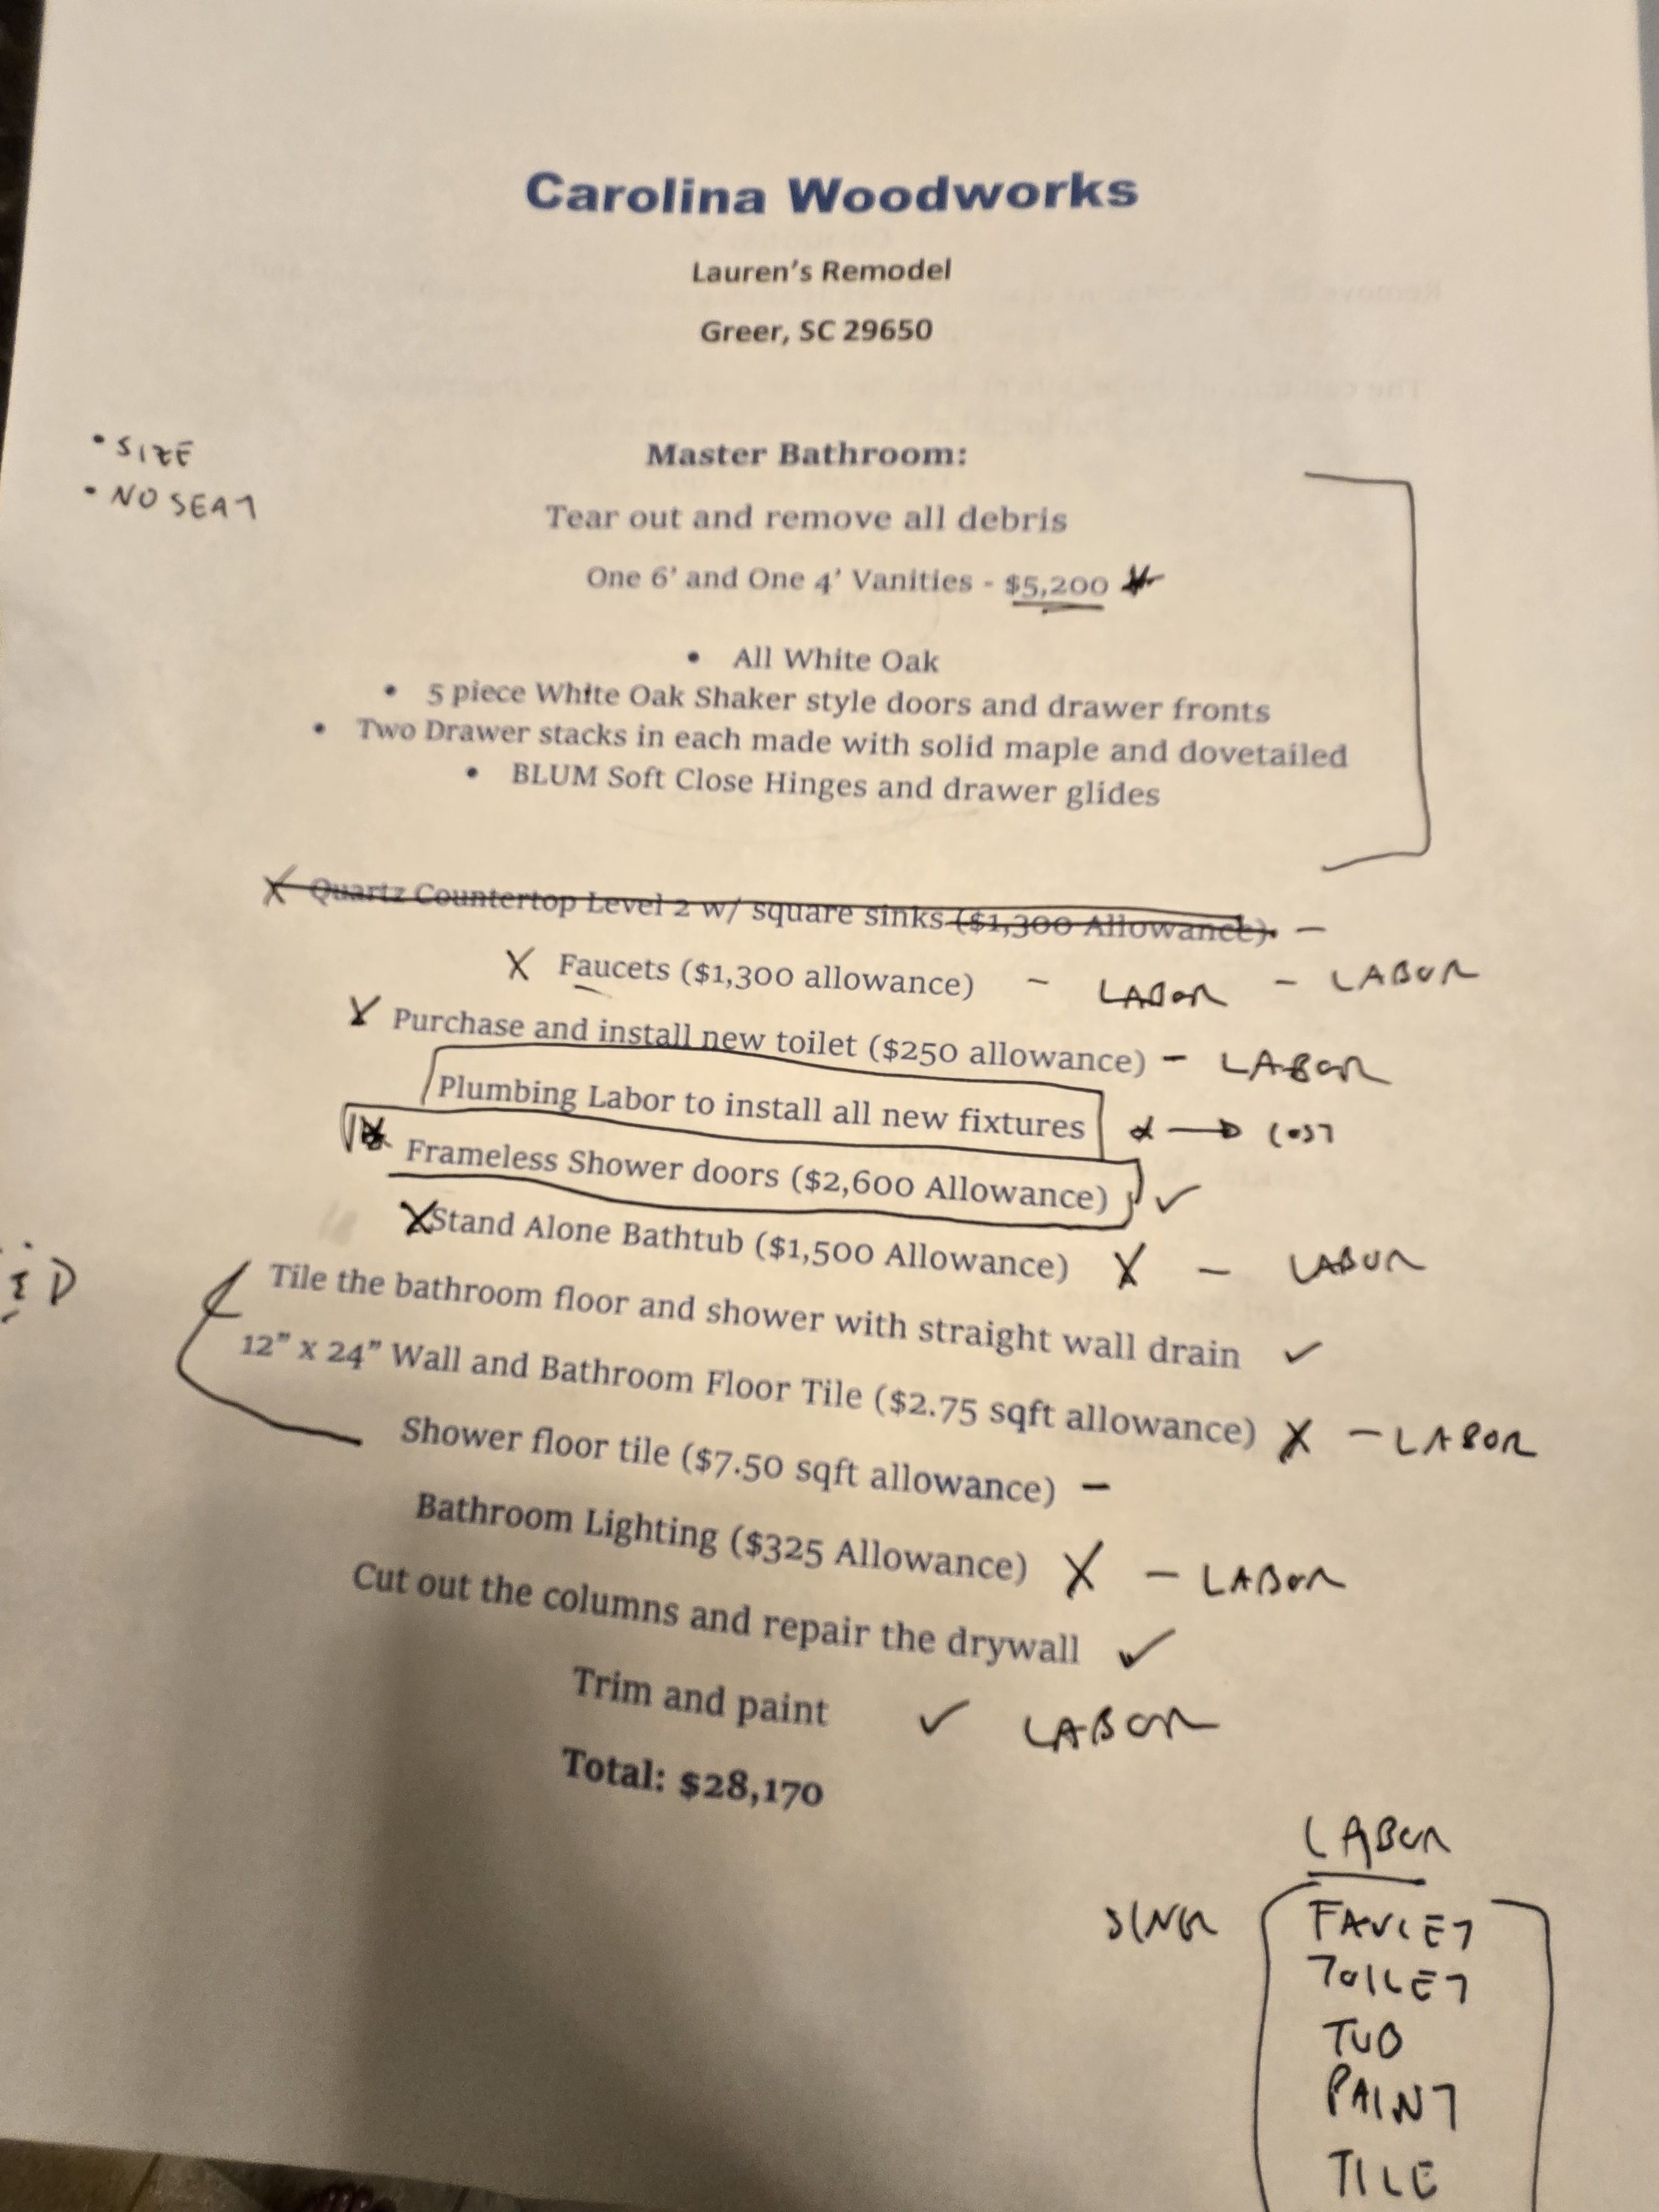 Carolina Woodworks
Lauren's Remodel
Greer, SC 29650
• SIZE
• NO SEAT
Master Bathroom:
Tear out and remove all debris
One 6' and One 4' Vanities - $5,200
• All White Oak
• 5 piece White Oak Shaker style doors and drawer fronts
• Two Drawer stacks in each made with solid maple and dovetailed
• BLUM Soft Close Hinges and drawer glides
X Quartz Countertop Level 2 w/ square sinks ($1,300 Allowance). -
X Faucets ($1,300 allowance) - LABOR - LABOR
X Purchase and install new toilet ($250 allowance) - LABOR
Plumbing Labor to install all new fixtures → COST
Frameless Shower doors ($2,600 Allowance) ✓
X Stand Alone Bathtub ($1,500 Allowance) X - LABOR
Tile the bathroom floor and shower with straight wall drain ✓
12" x 24" Wall and Bathroom Floor Tile ($2.75 sqft allowance) X - LABOR
Shower floor tile ($7.50 sqft allowance) -
Bathroom Lighting ($325 Allowance) X - LABOR
Cut out the columns and repair the drywall ✓
Trim and paint ✓ LABOR
Total: $28,170
LABOR
FAUCET
TOILET
TUB
PAINT
TILE